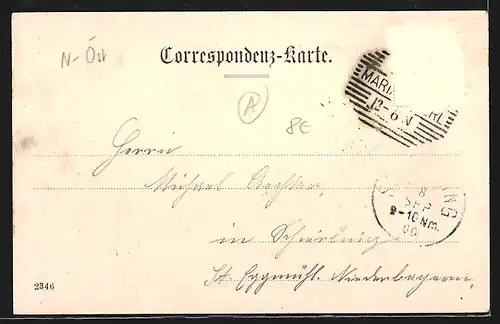 N-Öst
Correspondenz-Karte.
MARI
12-6 N
A
8€
Herrn
Michael
8
SEP
9-10 Nm.
00
NG
in Schierling
St. Eggmühl. Niederbayern.
2346